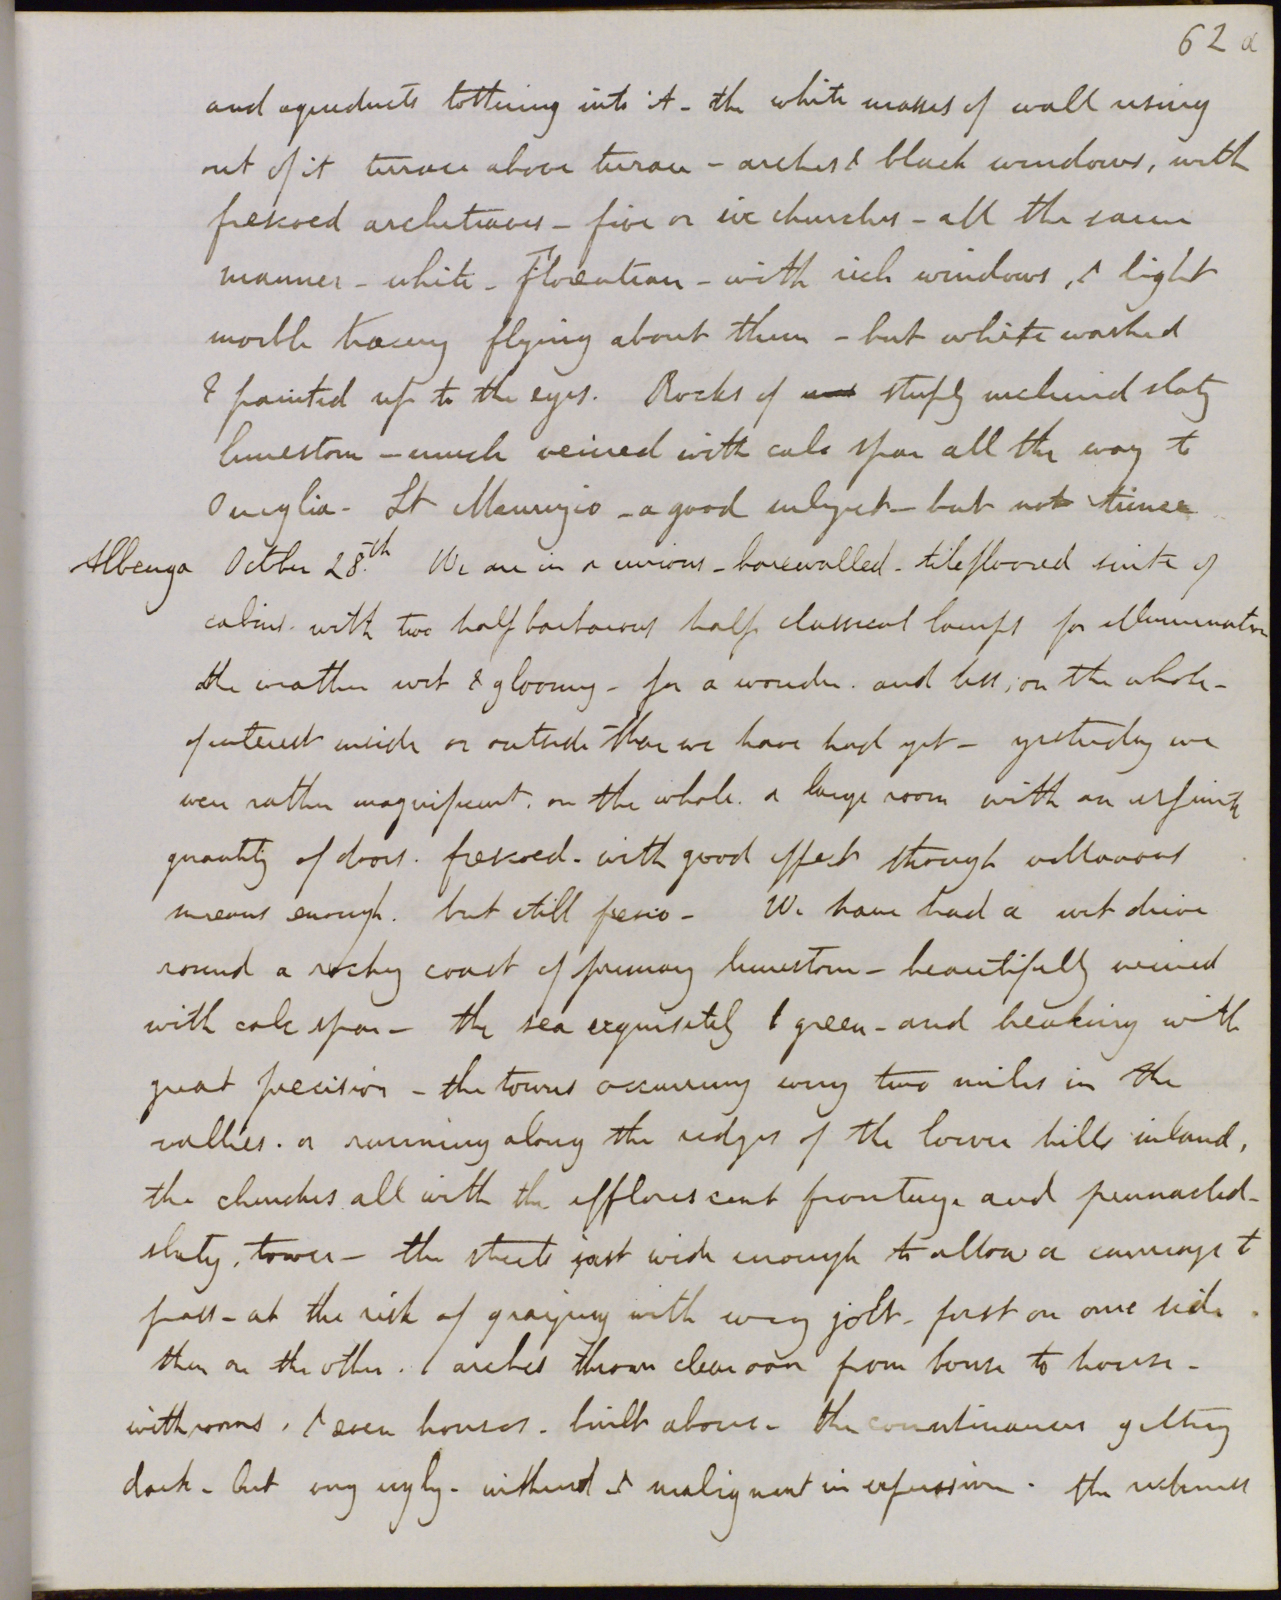 62 a
and aqueducts tottering into it - the white masses of wall rising
out of it terrace above terrace - arches & black windows, with
frescoed architraves - five or six churches - all the same
manner - white - Florentian - with rich windows, & light
marble tracery flying about them - but white washed
& painted up to the eyes. Rocks of steeply inclined slaty
limestone - much veined with calc spar all the way to
Oneglia - St Maurizio - a good subject - but not time
Albenga October 28th. We are in a curious - barewalled - tilefloored suite of
cabins. with two half barbarous half classical lamps for illumination
the weather wet & gloomy - for a wonder. and less, on the whole -
of interest inside or outside than we have had yet - yesterday we
were rather magnificent. on the whole. a large room with an infinite
quantity of doors. frescoed - with good effect though villanous
means enough. but still fresco - We have had a wet drive
round a rocky coast of primary limestone - beautifully veined
with calc spar - the sea exquisitely green - and breaking with
great precision - the towns occurring every two miles in the
vallies. or running along the ridges of the lower hills inland,
the churches all with the efflorescent frontage and pinnacled -
slaty, tower - the streets just wide enough to allow a carriage to
pass - at the risk of grazing with every jolt - first on one side.
then on the other. arches thrown clear over from house to house -
with rooms, & even houses - built above - the countinances getting
dark - but very ugly - withered & malignant in expression. the richness